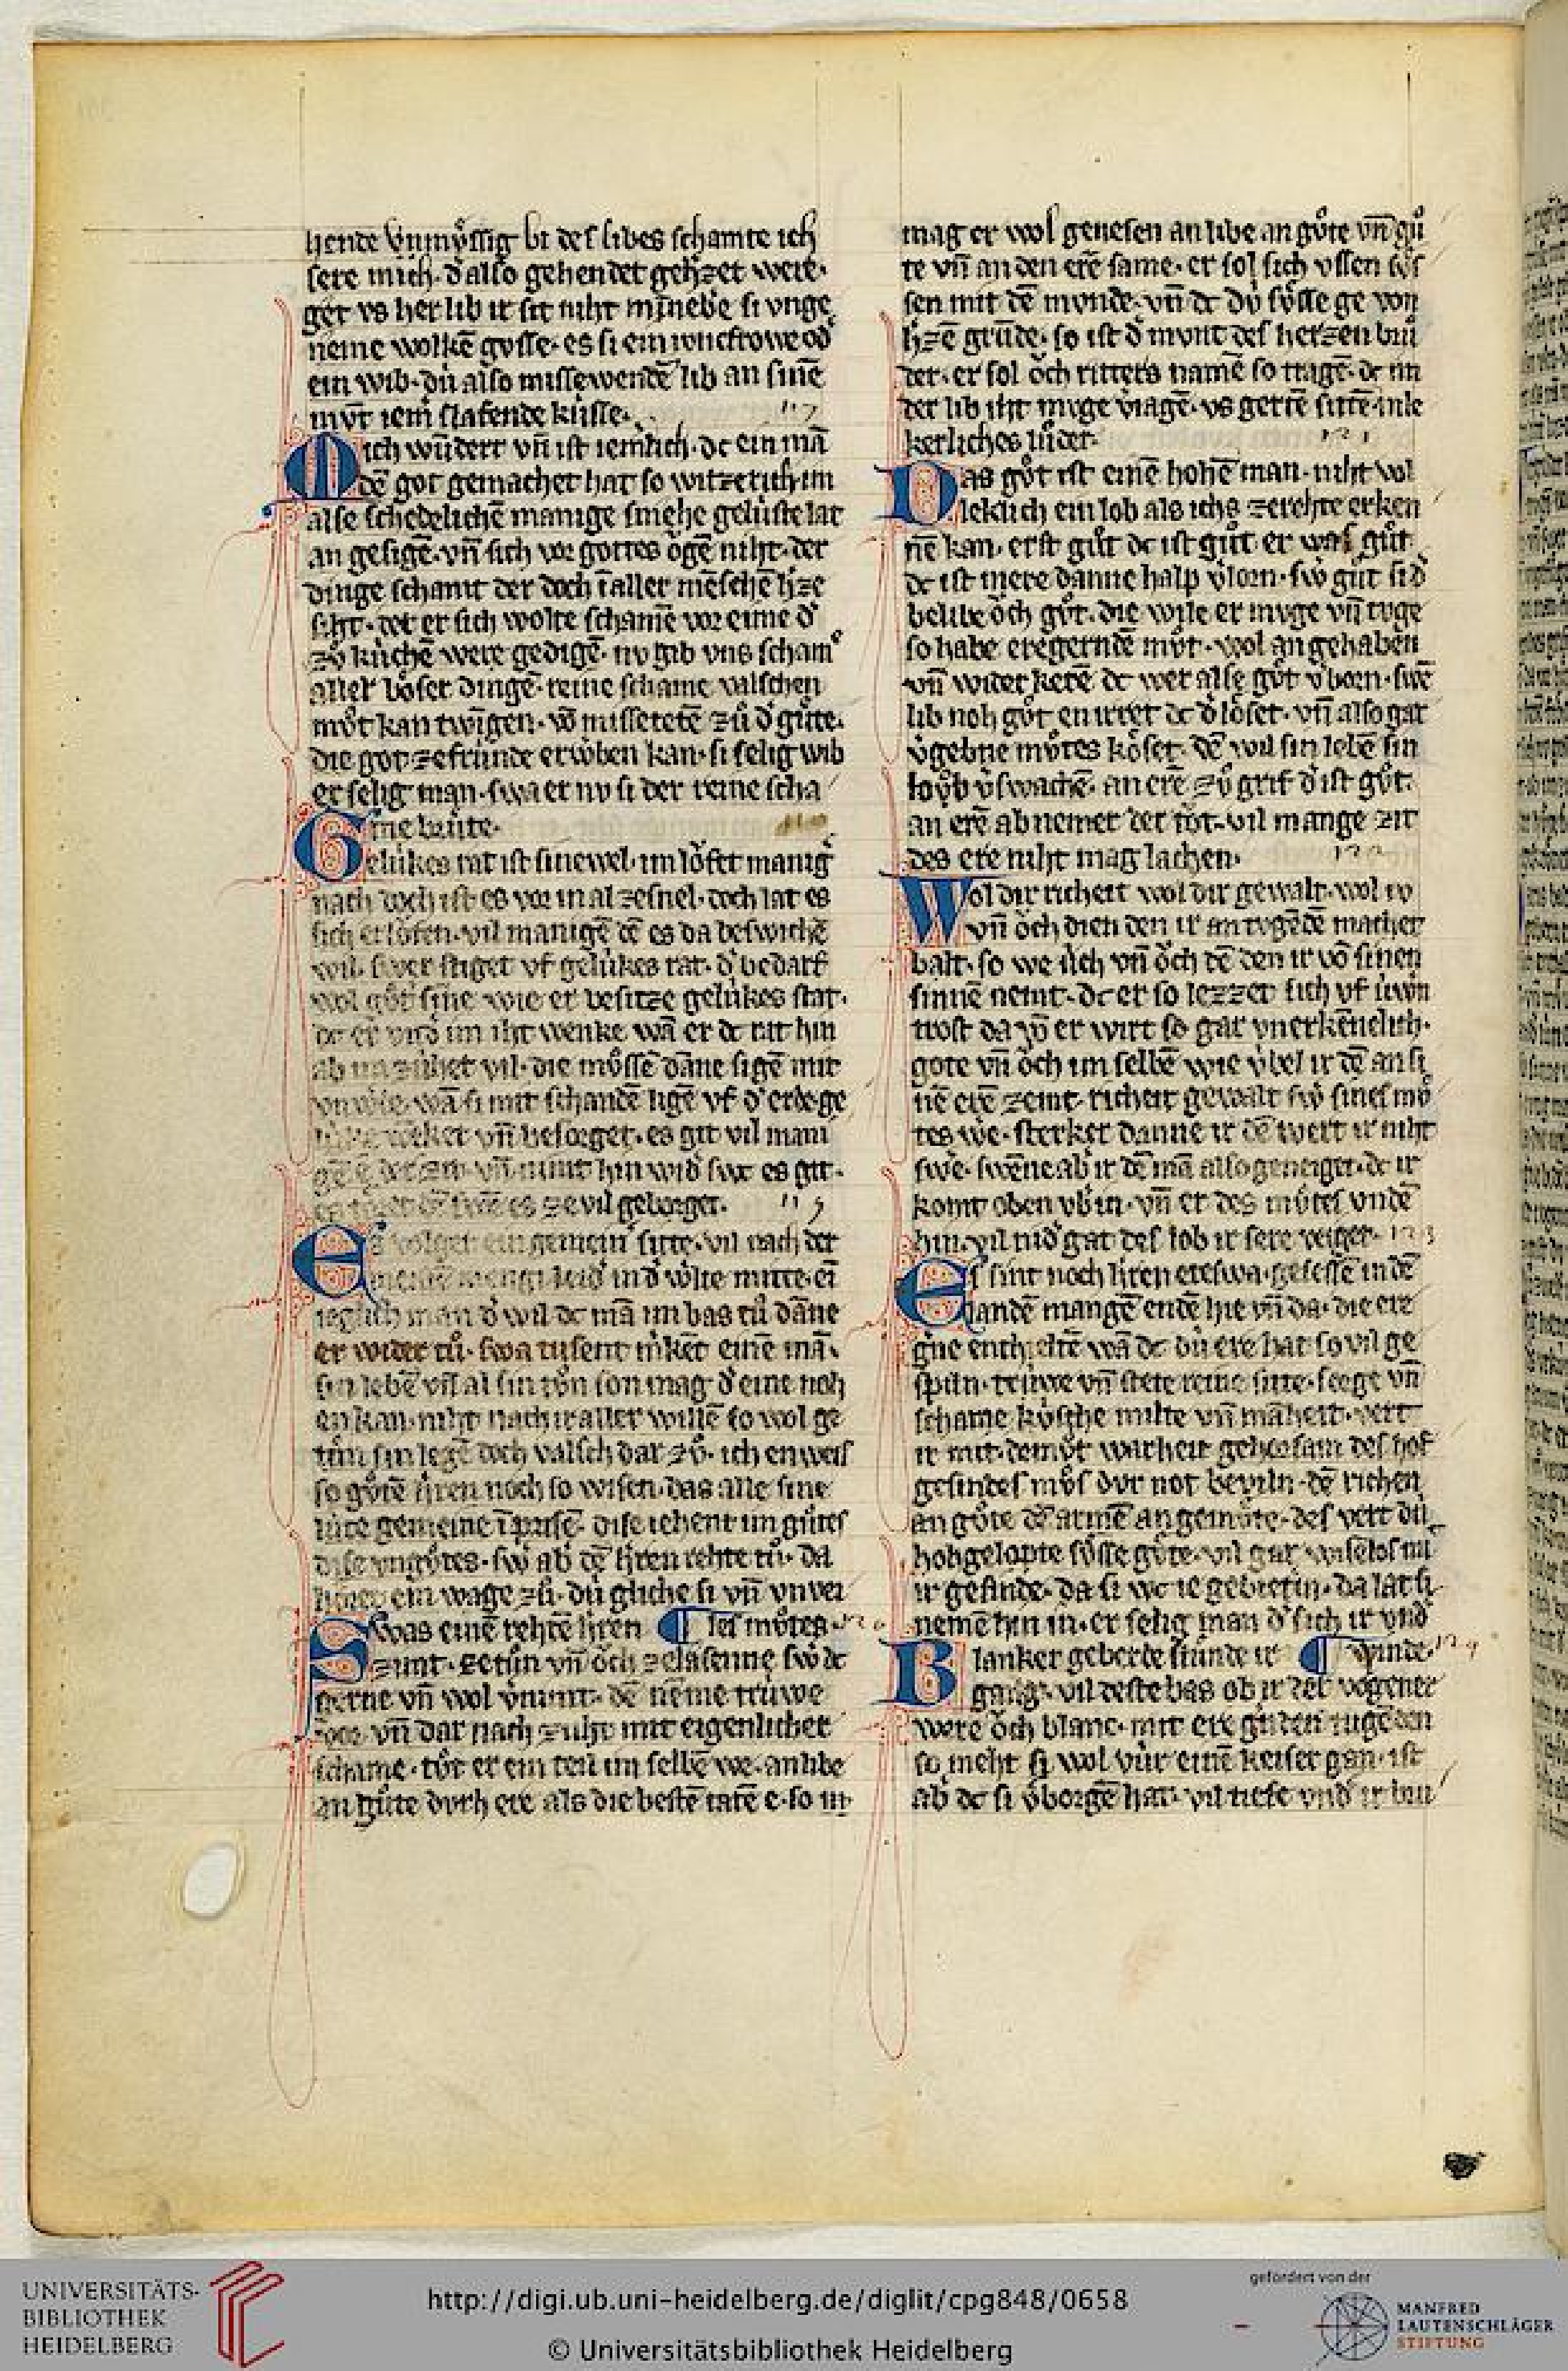 hende vnmvͦssig bi des libes schamte ich
sere mich. d͛ also gehendet geh͛zet were.
get vs her lib ir sit niht mīnebe si vnge
neme wolkē gvsse. es si ein ivncfrowe od͛
ein wib. dū also missewendē lib an sinē
mvͦt iem͛ slafende kússe.
Mich wūdert vn̄ ist iemlich. dc ein mā
dē got gemachet hat so witzerich im
alse schedelichē manige smehe gelúste lat
an gesigē. vn̄ sich vor gottes oͮgē niht. der
dinge schamt der doch ī aller mēschē h͛ze
siht. det er sich wolte schamē vor eime d͛
zvͦ kúchē were gedigē. nv gib vns scham
aller boͤser dinge. reine schame valschen
mvͦt kan twīgen. vō missetetē zuͦ d͛ guͤte.
die got ze frúnde erw͛ben kan. si selig wib
er selig man. swa er nv si der reine scha
me brúte.
Gelúkes rat ist sinewel. im loͮfet manig͛
nach doch ist es vor in al ze snel. doch lat es
sich erloͮfen. vil manigē dē es da beswichē
wil. swer stiget vf gelúkes rat. d͛ bedarf
wol guͦt sīne wie er besitze gelúkes stat.
dc er vnd͛ im iht wenke wā er dc rat hin
ab im zúhet vil. die mvͤssē dāne sigē mit
vnwde. wā si mit schandē ligē vf d͛ erde ge
lúke weket vn̄ besorget. es git vil mani
gē e der zit. vn̄ nimt hin wid͛ swc es git.
es toͤret dē swē es ze vil geborget. 119
Es volget ein gemein͛ sitte. vil nach der
menge leid͛ in d͛ w͛lte mitte. ei
ieglich man d͛ wil dc mā im bas tuͦ dāne
er wider tuͦ. swa tusent m͛kēt einē mā.
sin lebē vn̄ al sin tvͦn son mag d͛ eine noh
en kan. niht nach ir aller willē so wol ge
tuͦn sin legē doch valsch dar zvͦ. ich enweis
so gvͦtē h͛ren noch so wisen. das alle sine
lúte gemeine ī prisē. dise iehent im guͦtes
dise vngvͦtes. sw͛ ab͛ dē h͛ren rehte tuͦ. da
hōret ein wage zuͦ. dú gliche si vn̄ vnver
Swas einē rehtē h͛ren ¶ les mvͦtes. 120
zimt. ze tuͦn vn̄ oͮch ze lasenne sw͛ dc
gerne vn̄ wol v͛nimt. dē nēme trúwe
vor. vn̄ dar nach zuht mit eigenlicher
schame. tvͦt er ein teil im selbē we. an libe
an guͦte dvrh ere als die bestē tatē e. so m
mag er wol genesen an libe an gvͦte vn̄ guͦ
te vn̄ an den erē same. er sol sich vssen svͦs
sen mit dē mvnde. vn̄ dc dú svͤsse ge von
h͛zē grūde. so ist d͛ mvnt des herzen brū
der. er sol oͮch ritters namē so tragē. dc im
der lib iht mvge v͛tragē. vs gertē sittē. inle
kerliches luͦder. 121
Das gvͦt ist einē hohē man. niht vol
leklich ein lob als ichs ze rehte erken
nē kan. erst guͦt dc ist guͦt. er was guͦt
dc ist mere danne halp v͛lorn. sw͛ guͦt si d͛
belibe oͮch gvͦt. die wile er mvge vn̄ tvge
so habe eregerndē mvͦt. wol an gehaben
vn̄ wider kerē dc wer alse gvͦt v͛born. swē
lib noh gvͦt en irret dc d͛ loͤset. vn̄ also gar
v͛gebne mvͦtes koͤset. dē wil sin lebē sin
loͮb v͛swachē. an erē zvͦ grif d͛ ist gvͦt.
an erē abnemer der toͤt. vil mange zit
des ere niht mag lachen. 122
Wol dir richeit wol dir gewalt. wol iv
vn̄ oͮch dien den ir an tvgēdē machet
balt. so we úch vn̄ oͮch dē den ir vō sinen
sinnē nemt. dc er so lezzet sich vf úw͛n
trost da vō er wirt so gar vnerkēnelich.
gote vn̄ oͮch im selbē wie v́bel ir dē an si
nē erē zemt. richeit gewalt sw͛ sines mvͦ
tes we. sterker danne ir dē wert ir niht
swe. swēne ab͛ ir dē mā also geneiget. dc ir
komt oben vb͛ in. vn̄ er des mvͦtes vndē
hin. vil nid͛ gat des lob ir sere veiget. 123
Es sint noch h͛ren eteswa. gesessē in dē
landē mangē endē hie vn̄ da. die ere
gne enthaltē wā dc dú ere hat so vil ge
spiln. trúwe vn̄ stete reine sitte. sorge vn̄
schame kv́sche milte vn̄ māheit. vert
ir mit. demvͦt warheit gehorsam des hof
gesindes mvͦs dvr not beviln. dē richen
an gvͦte dē armē an gemvͤte. des vert dú
hohgelopte svͤsse guͤte. vil gar wiselos mi
ir gesinde. da si wc ie gebietin. da lat si
nemē hin in. er selig man d͛ sich ir vnd͛
Blanker geberde stūnde ir ¶ winde. 124
gang. vil deste bas ob ir der vogener
were oͮch blanc. mit ere gūden tugēden
so meht si wol vúr einē keiser gan. ist
ab͛ dc si v͛borgē hat. vil tiefe vnd͛ ir brú
UNIVERSITÄTS-
BIBLIOTHEK
HEIDELBERG
http://digi.ub.uni-heidelberg.de/diglit/cpg848/0658
© Universitätsbibliothek Heidelberg
gefördert von der
MANFRED
LAUTENSCHLÄGER
STIFTUNG